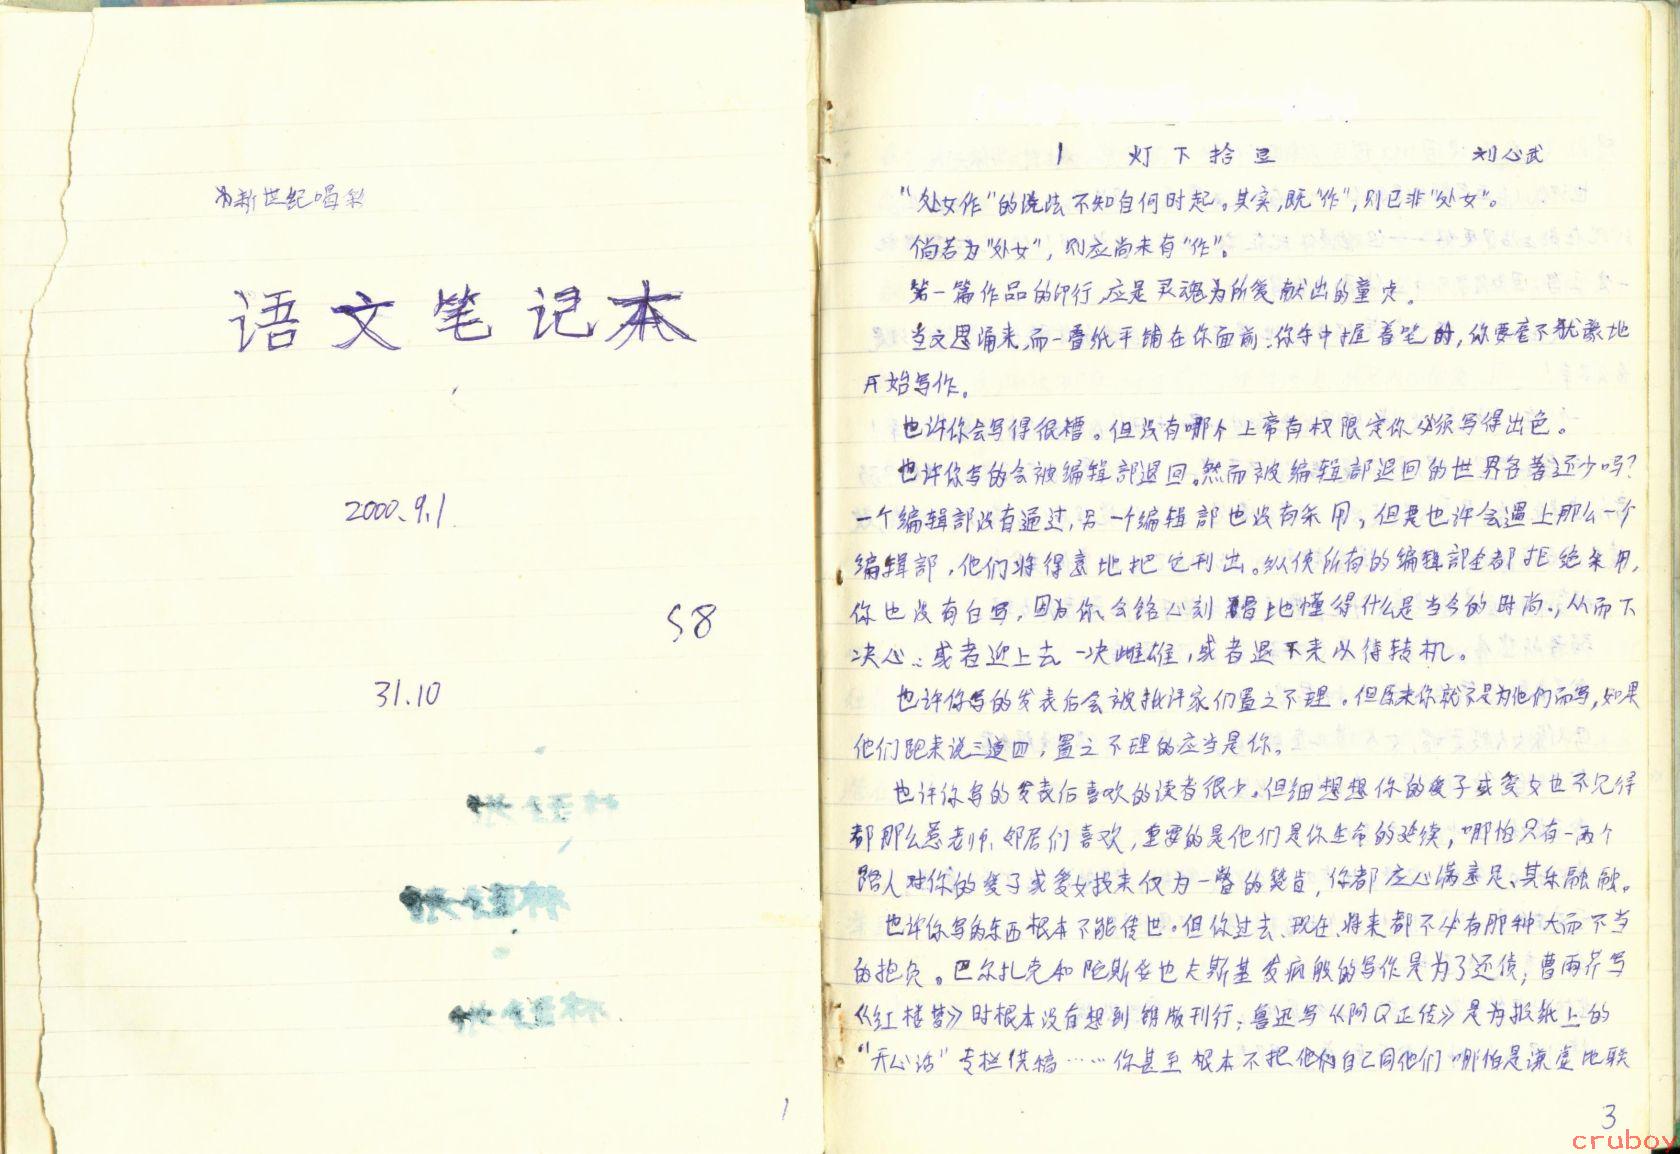 为新世纪喝彩
语文笔记本
2000.9.1
58
31.10
1
1 灯下拾豆 刘心武
“处女作”的说法不知自何时起。其实,既“作”,则已非“处女”。
倘若为“处女”,则应尚未有“作”。
第一篇作品的印行,应是灵魂为所爱献出的童贞。
当文思涌来,而一叠纸平铺在你面前,你手中握着笔时,你要毫不犹豫地
开始写作。
也许你会写得很糟。但没有哪个上帝有权限定你必须写得出色。
也许你写的会被编辑部退回。然而被编辑部退回的世界名著还少吗?
一个编辑部没有通过,另一个编辑部也没有采用,但是也许会遇上那么一个
编辑部,他们将得意地把它刊出。纵使所有的编辑部全都拒绝采用,
你也没有白写,因为你会铭心刻骨地懂得什么是当今的时尚,从而下
决心:或者迎上去一决雌雄,或者退下来以待转机。
也许你写的发表后会被批评家们置之不理。但原来你就不是为他们而写,如果
他们跑来说三道四,置之不理的应当是你。
也许你写的发表后喜欢的读者很少。但细想想你的爱子或爱女也不见得
都那么惹老师、邻居们喜欢,重要的是他们是你生命的延续,哪怕只有一两个
路人对你的爱子或爱女投来仅为一瞥的赞肯,你都应心满意足、其乐融融。
也许你写的东西根本不能传世。但你过去、现在、将来都不必有那种大而不当
的抱负。巴尔扎克和陀斯妥也夫斯基发疯般的写作是为了还债,曹雨芹写
《红楼梦》时根本没有想到销版刊行;鲁迅写《阿Q正传》是为报纸上的
“开心话”专栏供稿……你甚至根本不把他们自己同他们哪怕是谦虚地联
3
cruboy